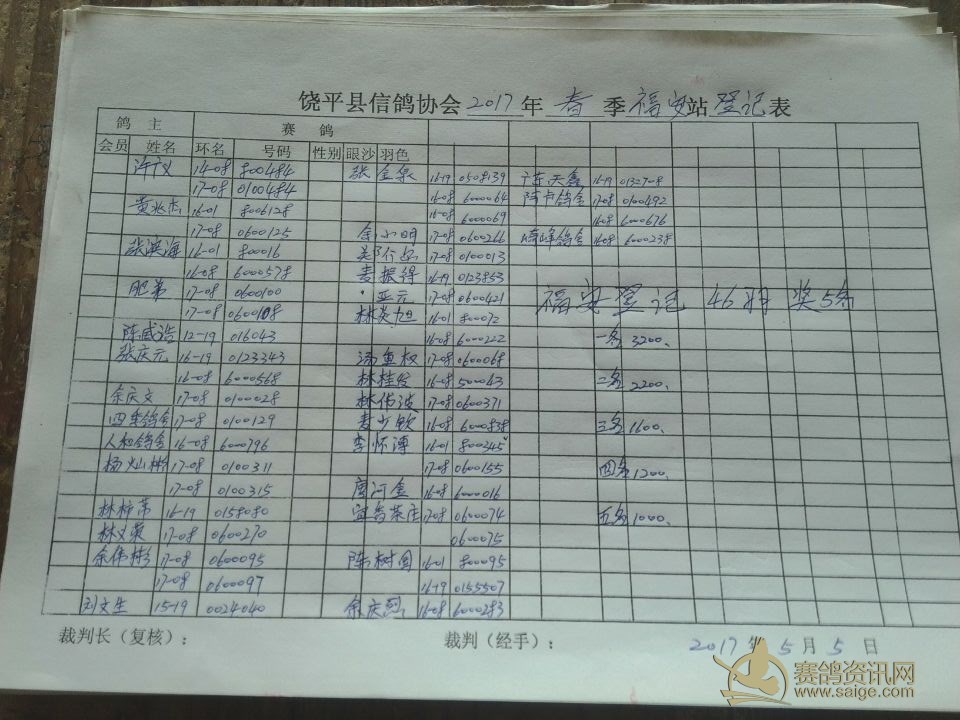 饶平县信鸽协会 2017 年 春 季 福安 站 登记 表
鸽 主 赛 鸽
会员 姓名 环名 号码 性别 眼沙 羽色
14-08 800484 张金泉 16-19 0508139 广东天鑫 16-19
17-08 0100484 16-08 6000064 17-08 0100492
黄兆杰 16-01 8006128 16-08 6000069 16-08 6000676
17-08 0600125 余小明 17-08 0600266 16-08 6000238
张滨海 16-01 800016 17-08 0100013
16-08 6000578 麦振得 16-19 0123853
肥弟 17-08 0600100 亚元 17-08 0600421 福安登记 46羽 奖5名
17-08 0600108 林英旭 16-01 80072
陈威浩 12-19 016043 16-08 6000222 一名 3200、
张庆元 16-19 0123343 汤鱼权 17-08 0600068
16-08 6000568 林桂发 16-08 500043 二名 2200、
余庆文 17-08 0100028 林伟波 17-08 0600371
四季鸽舍 17-08 0100129 麦少钦 16-08 6000838 三名 1600、
人和鸽舍 16-08 6000796 李怀谆 16-01 800245
杨灿彬 17-08 0100311 17-08 0600155 四名 1200、
17-08 0100315 唐河金 16-08 6000016
16-19 0158080 茶庄 17-08 0600074 五名 1000、
17-08 0600270 0600075
余伟彬 17-08 0600095 陈树国 16-01 800095
17-08 0600097 16-19 0155507
刘文生 15-19 0024040 余庆烈 16-08 6000283
裁判长（复核）： 裁判（经手）： 2017 年 5 月 5 日
赛鸽资讯网
www.saige.com